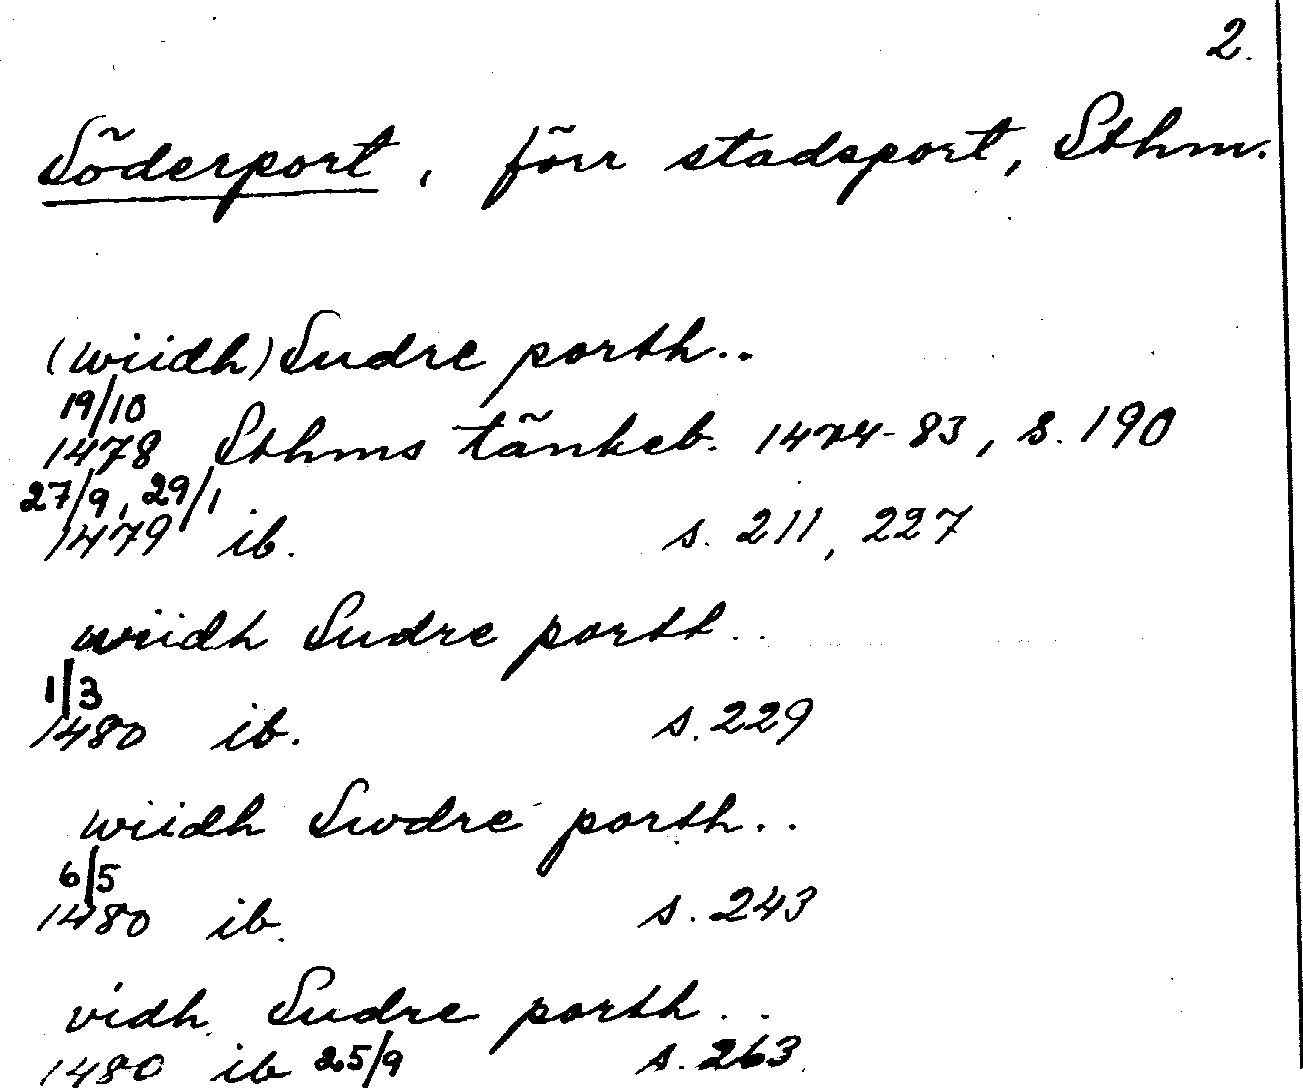 2.
Söderport, förr stadsport, Sthm.
(wiidh) Sudre porth..
19/10
1478 Sthms tänkeb. 1474-83, s. 190
27/9, 29/1
1479 ib. s. 211, 227
wiidh Sudre portt..
1/3
1480 ib. s. 229
wiidh Swdre porth..
6/5
1480 ib. s. 243
vidh Sudre porth..
1480 ib 25/9 s. 263.